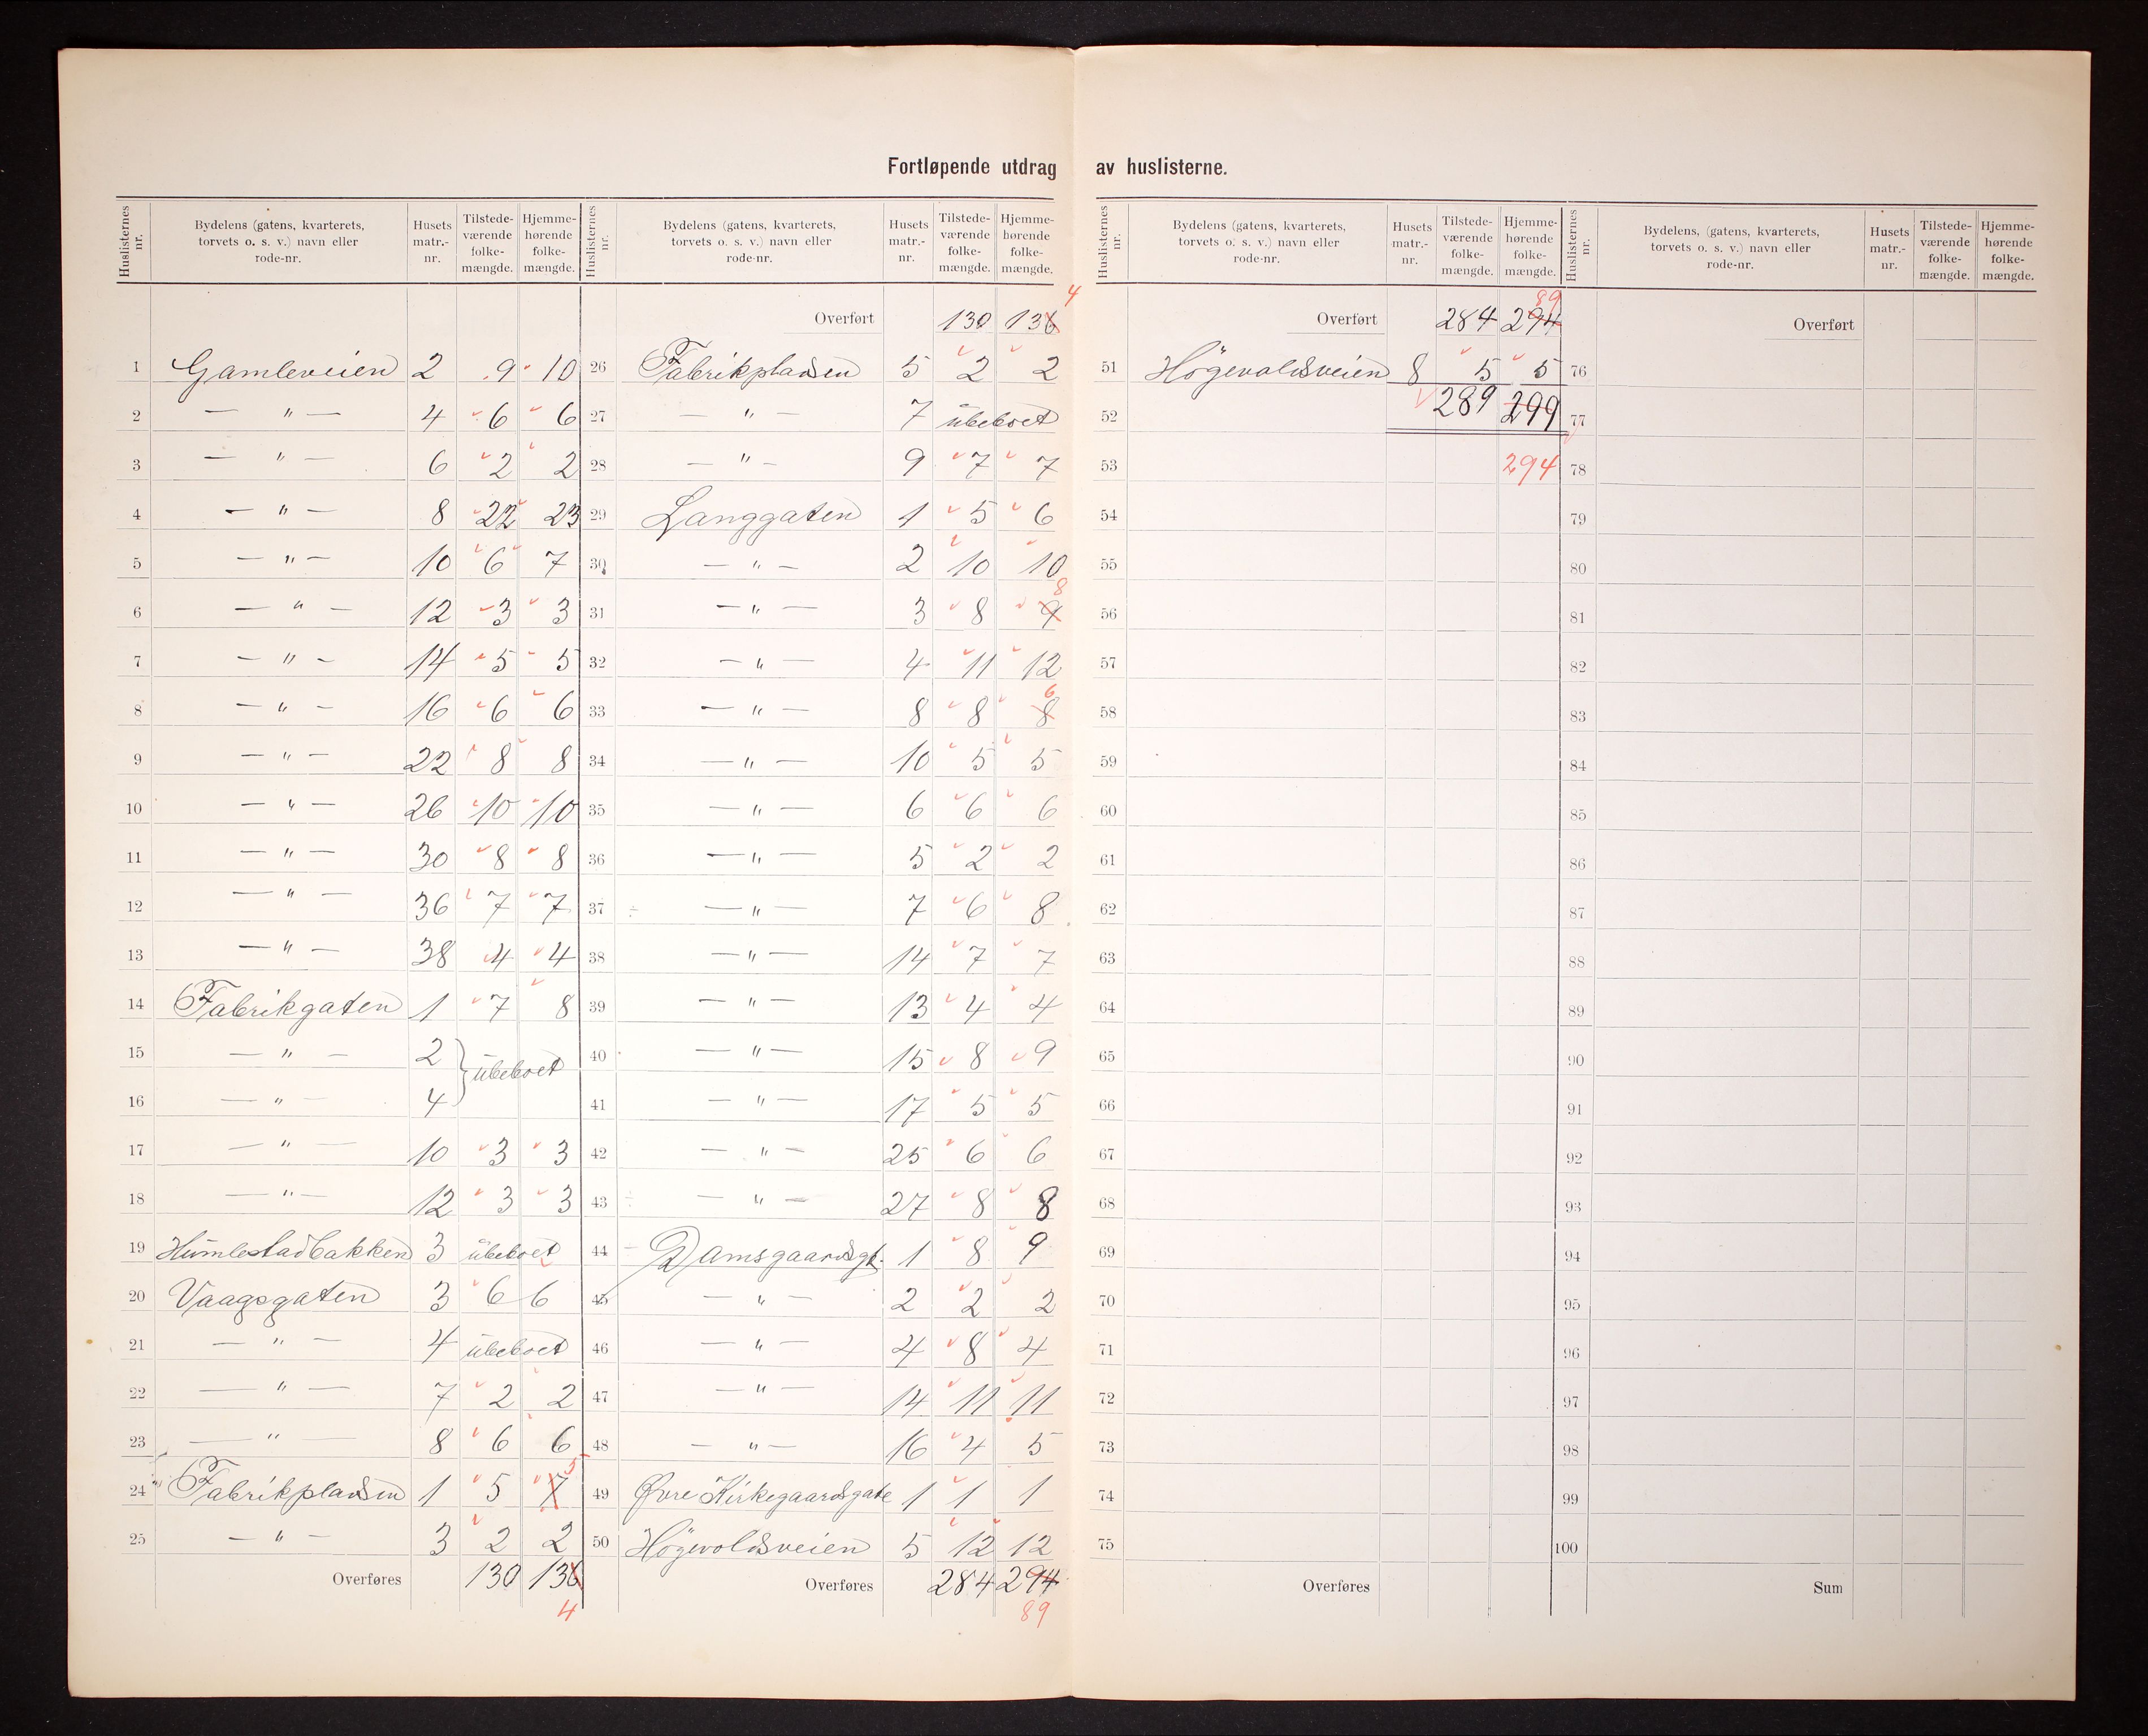 Fortløpende utdrag av huslisterne.
Huslisternes nr. | Bydelens (gatens, kvarterets, torvets o. s. v.) navn eller rode-nr. | Husets matr.-nr. | Tilstedeværende folkemængde. | Hjemmehørende folkemængde.
1 Gamleveien 2 9 10
2 — " — 4 6 6
3 — " — 6 2 2
4 — " — 8 22 23
5 — " — 10 6 7
6 — " — 12 3 3
7 — " — 14 5 5
8 — " — 16 6 6
9 — " — 22 8 8
10 — " — 26 10 10
11 — " — 30 8 8
12 — " — 36 7 7
13 — " — 38 4 4
14 Fabrikgaten 1 7 8
15 — " — 2 } ubeboet
16 — " — 4
17 — " — 10 3 3
18 — " — 12 3 3
19 Humlestadbakken 3 ubeboet
20 Vaagsgaten 3 6 6
21 — " — 4 ubeboet
22 — " — 7 2 2
23 — " — 8 6 6
24 Fabrikpladsen 1 5 7 5
25 — " — 3 2 2
Overføres 130 136
4
Huslisternes nr. | Bydelens (gatens, kvarterets, torvets o. s. v.) navn eller rode-nr. | Husets matr.-nr. | Tilstedeværende folkemængde. | Hjemmehørende folkemængde.
Overført 130 136 4
26 Fabrikpladsen 5 2 2
27 — " — 7 ubeboet
28 — " — 9 7 7
29 Langgaten 1 5 6
30 — " — 2 10 10
31 — " — 3 8 9 8
32 — " — 4 11 12
33 — " — 8 8 8 6
34 — " — 10 5 5
35 — " — 6 6 6
36 — " — 5 2 2
37 — " — 7 6 8
38 — " — 14 7 7
39 — " — 13 4 4
40 — " — 15 8 9
41 — " — 17 5 5
42 — " — 25 6 6
43 — " — 27 8 8
44 Damsgaardsgt. 1 8 9
45 — " — 2 2 2
46 — " — 4 8 4
47 — " — 14 11 11
48 — " — 16 4 5
49 Øvre Kirkegaardsgate 1 1 1
50 Högevoldsveien 5 12 12
Overføres 284 294
89
Huslisternes nr. | Bydelens (gatens, kvarterets, torvets o. s. v.) navn eller rode-nr. | Husets matr.-nr. | Tilstedeværende folkemængde. | Hjemmehørende folkemængde.
Overført 284 294 89
51 Högevoldsveien 8 5 5
52 289 299
53 294
54
55
56
57
58
59
60
61
62
63
64
65
66
67
68
69
70
71
72
73
74
75
Overføres
Huslisternes nr. | Bydelens, (gatens, kvarterets, torvets o. s. v.) navn eller rode-nr. | Husets matr.-nr. | Tilstedeværende folkemængde. | Hjemmehørende folkemængde.
Overført
76
77
78
79
80
81
82
83
84
85
86
87
88
89
90
91
92
93
94
95
96
97
98
99
100
Sum